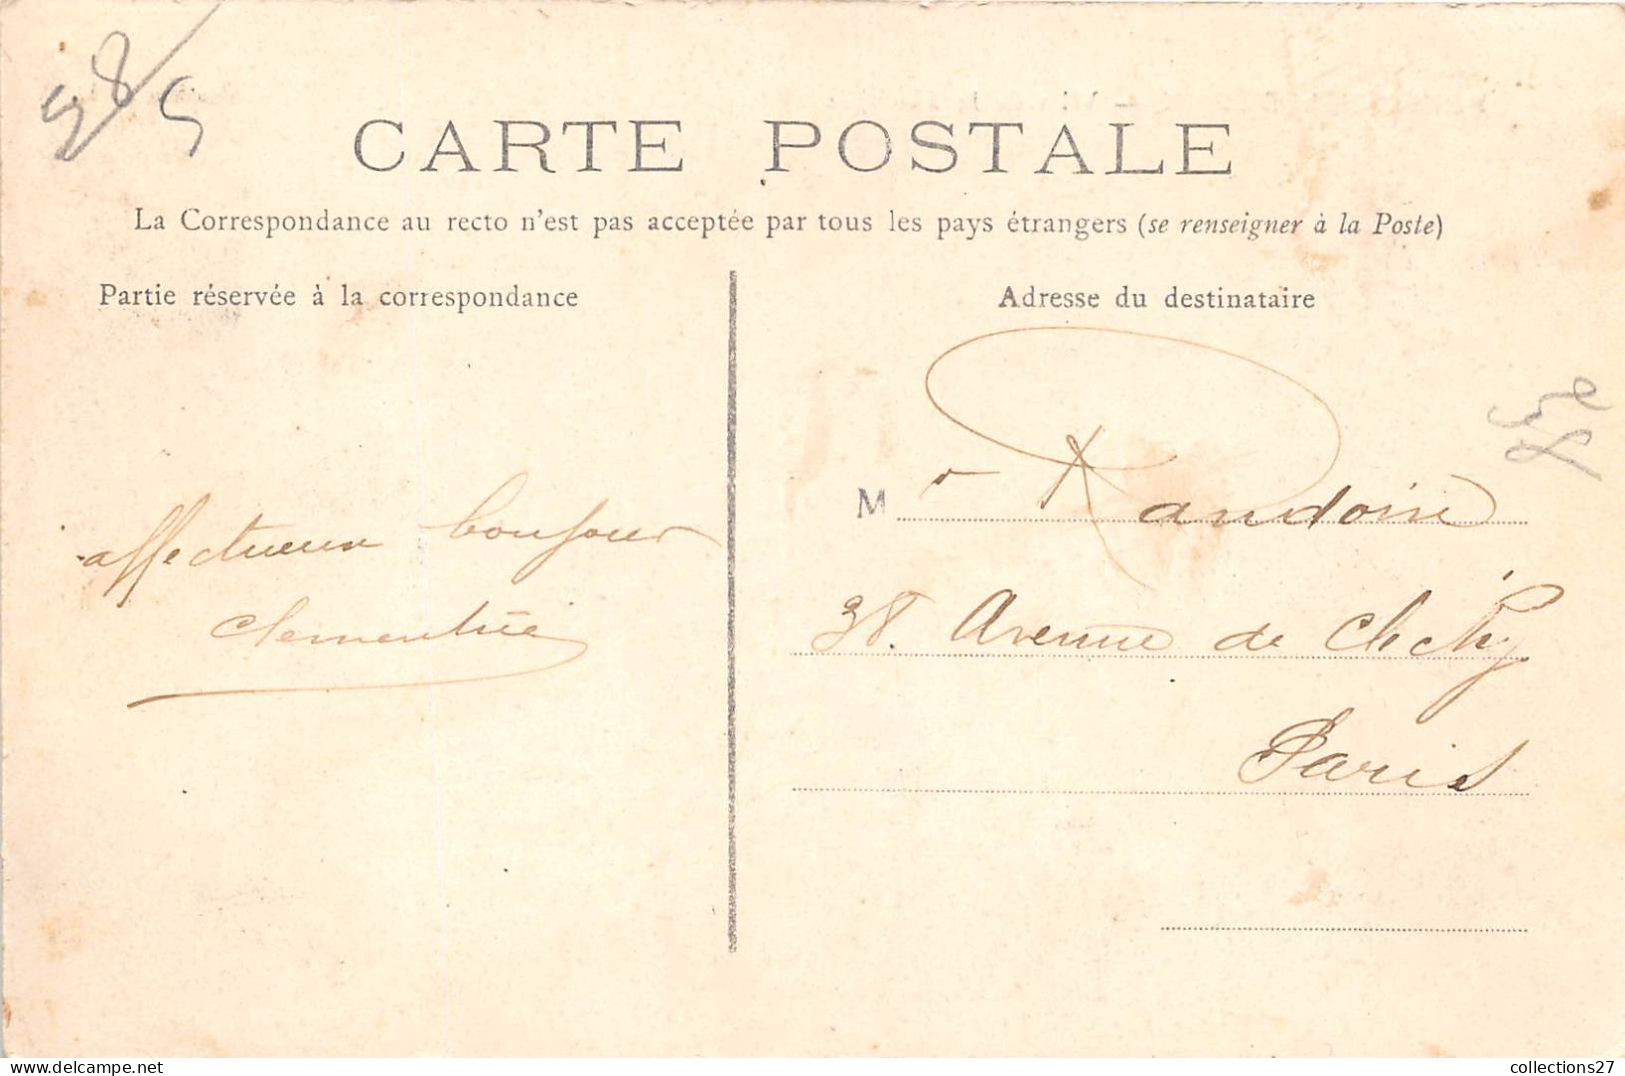 985
CARTE POSTALE
La Correspondance au recto n'est pas acceptée par tous les pays étrangers (se renseigner à la Poste)
Partie réservée à la correspondance
affectueux bonjour
Clementine
Adresse du destinataire
M r Randoin
38. Avenue de Clichy
Paris
collections27